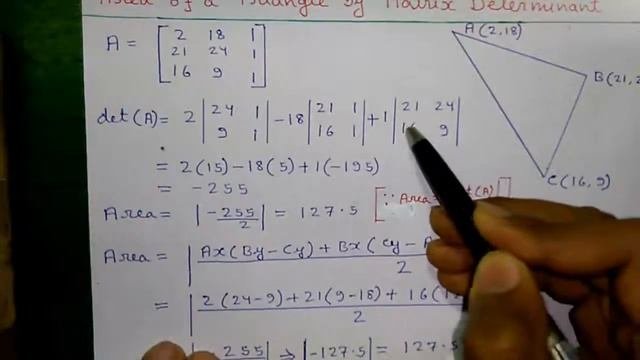 Area of a Triangle by Matrix Determinant
A = [2 18 1
21 24 1
16 9 1]
A(2,18)
B(21,2
C(16,9)
det(A) = 2 |24 1| - 18 |21 1| + 1 |21 24|
|9 1| |16 1| |16 9|
= 2(15) - 18(5) + 1(-195)
= -255
Area = |-255/2| = 127.5 [∵ Area =
(A)]
Area = |Ax(By-Cy) + Bx(Cy-A
2
= |2(24-9) + 21(9-18) + 16(1
2
|-255| → |-127.5| = 127.5